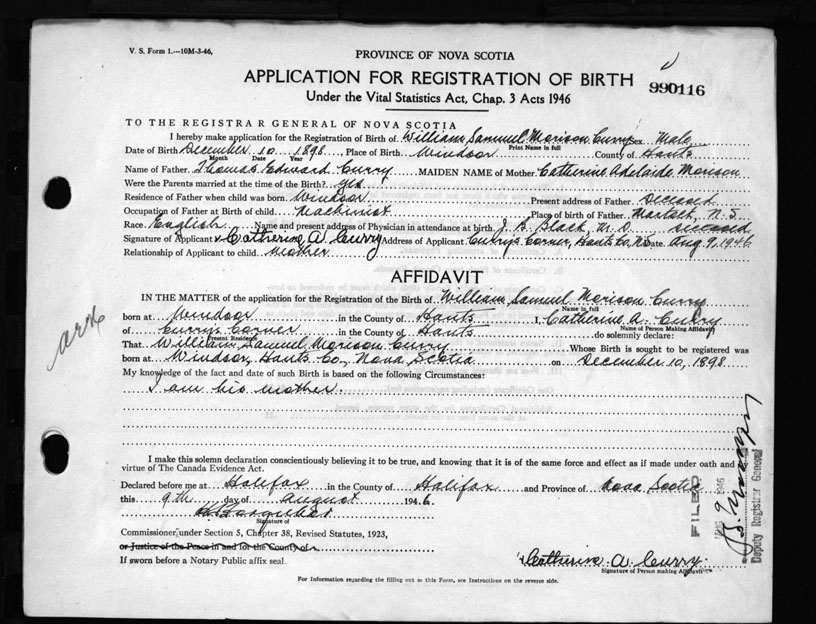 V. S. Form 1.—10M-3-46,
PROVINCE OF NOVA SCOTIA
APPLICATION FOR REGISTRATION OF BIRTH
990116
Under the Vital Statistics Act, Chap. 3 Acts 1946
TO THE REGISTRAR GENERAL OF NOVA SCOTIA
I hereby make application for the Registration of Birth of William Samuel Morison Curry Sex Male
Print Name in full
Date of Birth December 10 1898 Place of Birth Windsor County of Hants
Month Date Year
Name of Father Thomas Edward Curry MAIDEN NAME of Mother Catherine Adelaide Morison
Were the Parents married at the time of the Birth? yes
Residence of Father when child was born Windsor Present address of Father Deceased
Occupation of Father at Birth of child Machinist Place of birth of Father Martock, N.S.
Race English Name and present address of Physician in attendance at birth J. B. Black, M.D. deceased
Signature of Applicant Catherine A Curry Address of Applicant Currys Corner, Hants Co, NS Date Aug 9, 1946
Relationship of Applicant to child mother
AFFIDAVIT
IN THE MATTER of the application for the Registration of the Birth of William Samuel Morison Curry
Name in full
born at Windsor in the County of Hants I, Catherine A. Curry
Name of Person Making Affidavit
of Currys Corner in the County of Hants do solemnly declare:
Present Residence
That William Samuel Morison Curry Whose Birth is sought to be registered was
born at Windsor, Hants Co, Nova Scotia on December 10, 1898
My knowledge of the fact and date of such Birth is based on the following Circumstances:
I am his mother
I make this solemn declaration conscientiously believing it to be true, and knowing that it is of the same force and effect as if made under oath and by
virtue of The Canada Evidence Act.
Declared before me at Halifax in the County of Halifax and Province of Nova Scotia
this 9th day of August 1946
Signature of
Commissioner under Section 5, Chapter 38, Revised Statutes, 1923,
or Justice of the Peace in and for the County of
If sworn before a Notary Public affix seal
Catherine A. Curry
Signature of Person making Affidavit
For Information regarding the filling out of this Form, see Instructions on the reverse side.
FILED
AUG 9 1946
Deputy Registrar General